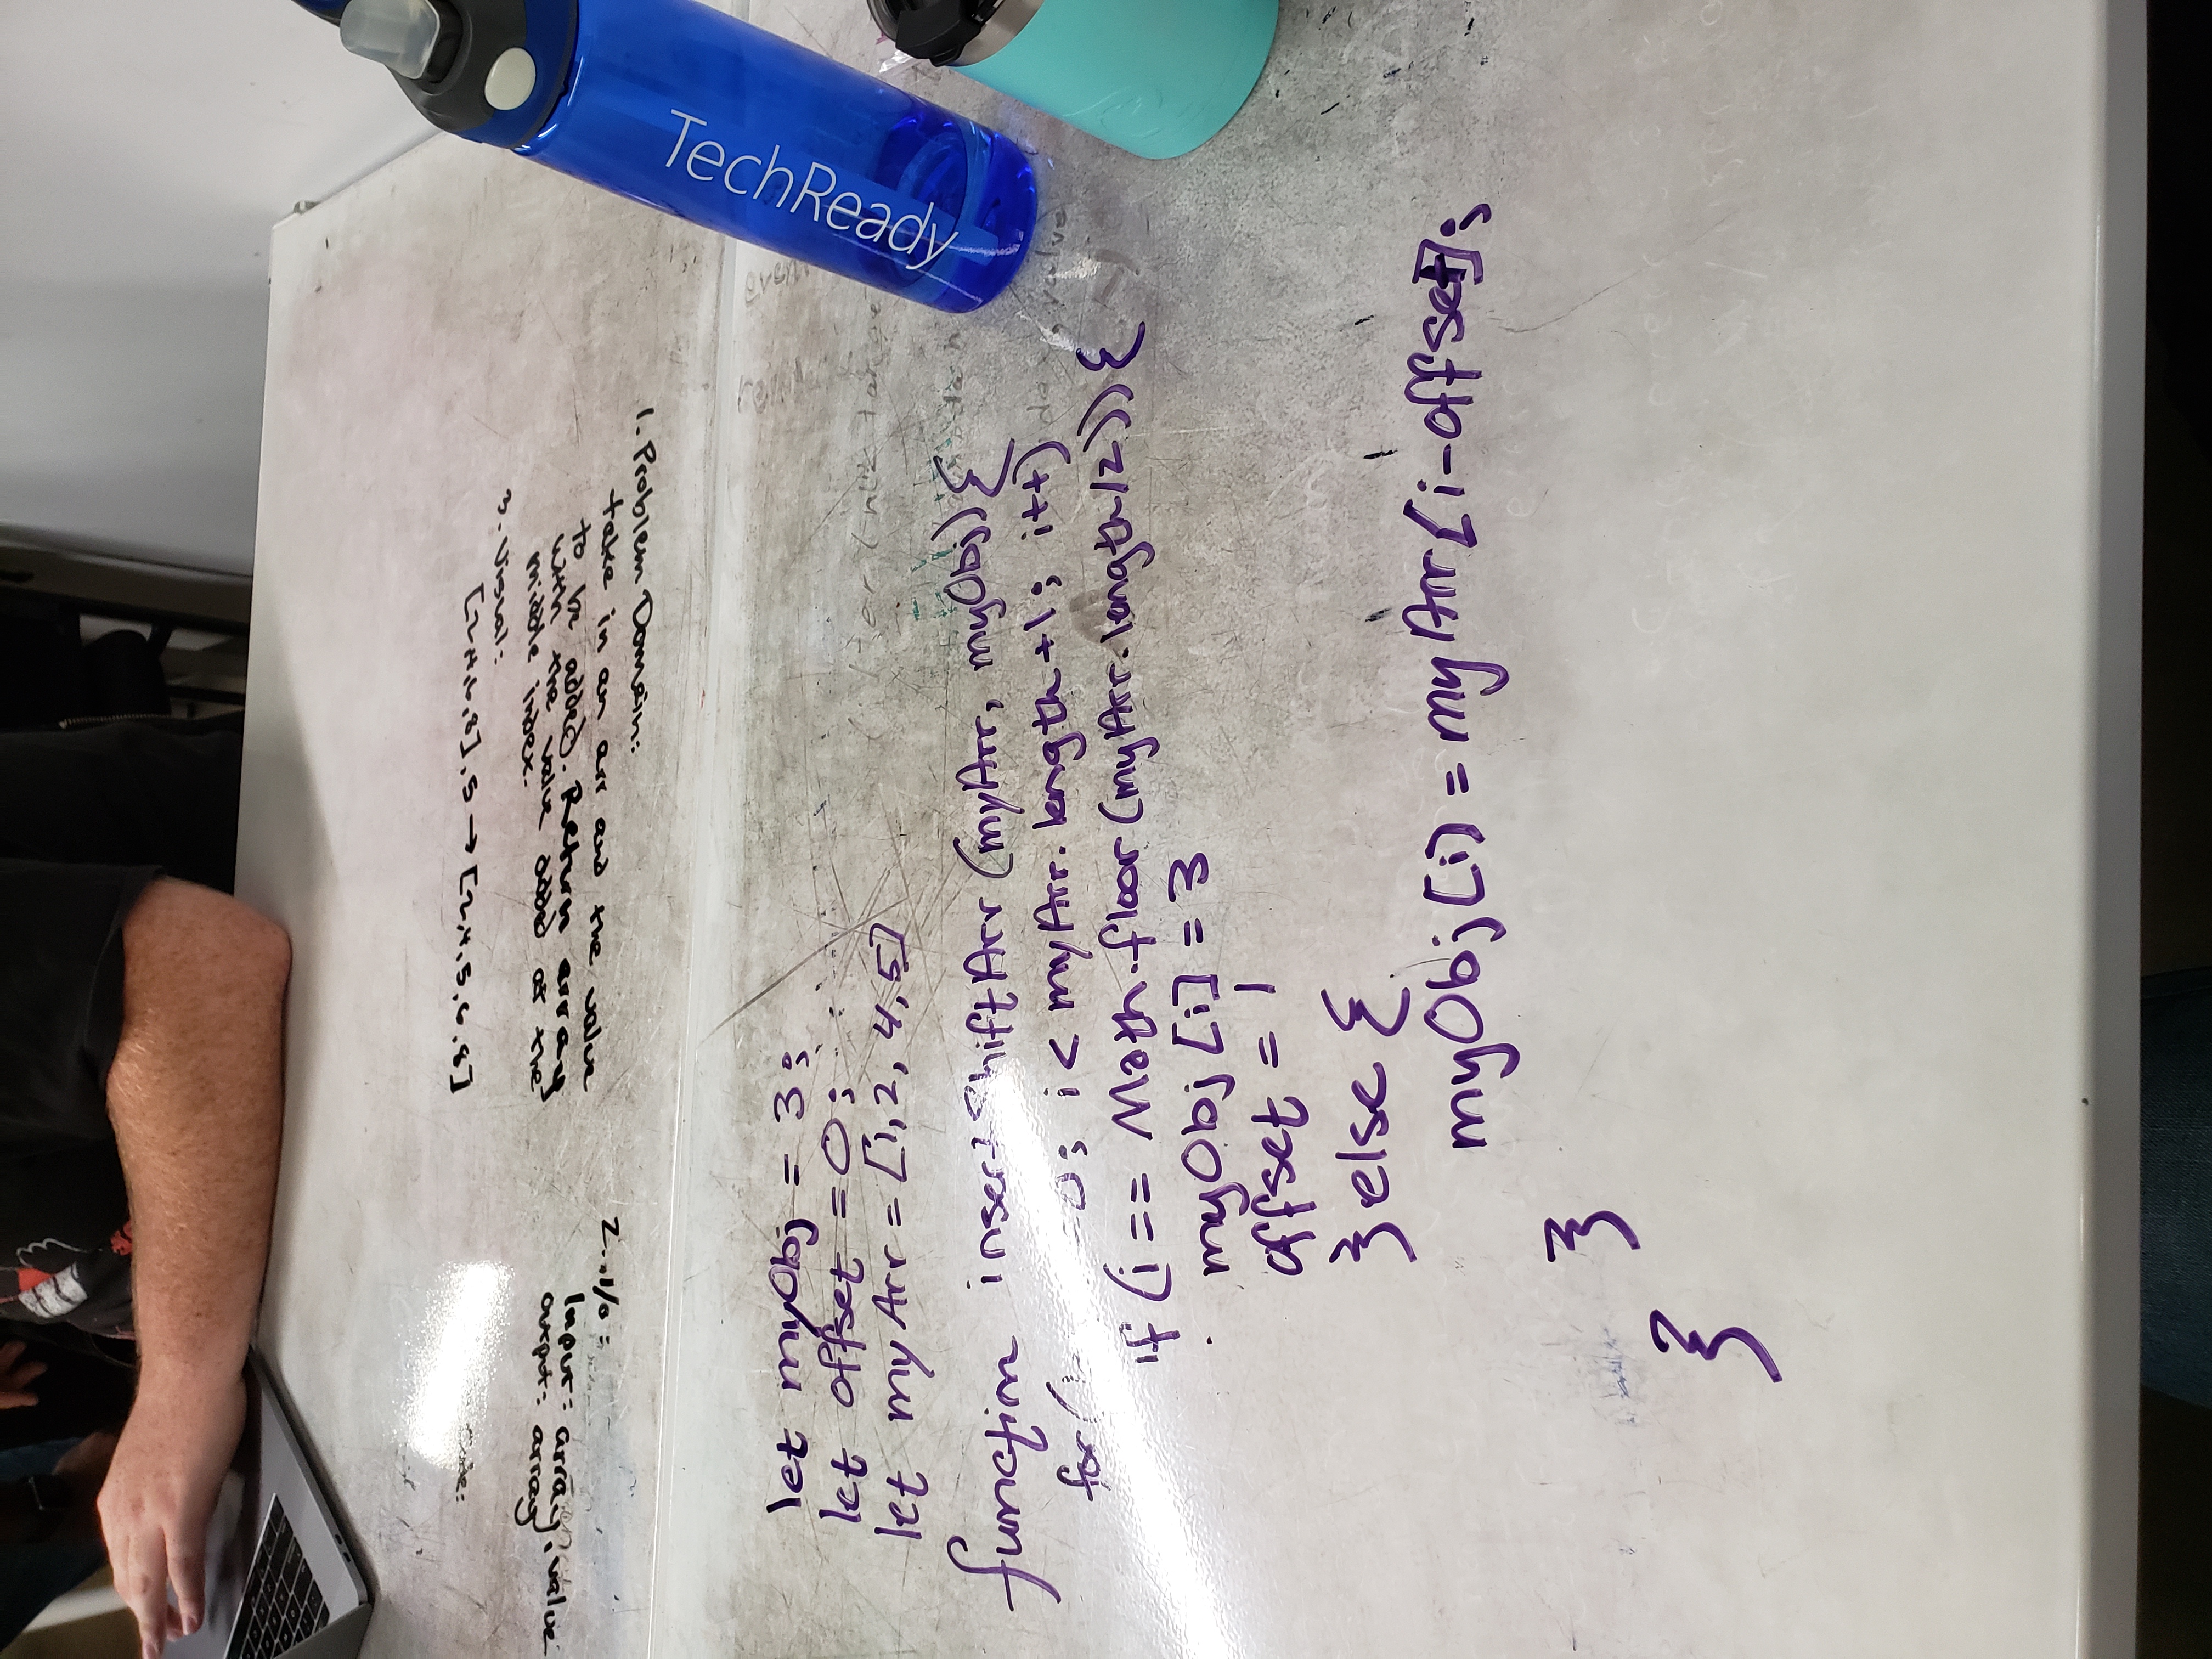 1. Problem Domain:
take in an arr and the value
to be added. Return array
with the value added at the
middle index.
2. I/O:
Input: array, value
output: array
3. Visual:
[2,4,6,8], 5 → [2,4,5,6,8]
let myObj = 3;
let offset = 0;
let myArr = [1, 2, 4, 5]
function insertShiftArr (myArr, myObj) {
for( =0; i < myArr.length+1; i++)
if (i == Math.floor (myArr.length/2)) {
myObj [i] = 3
offset = 1
} else {
myObj [i] = myArr [i-offset];
}
}
TechReady
value